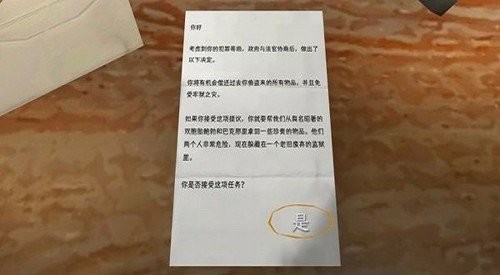 你好
考虑到你的犯罪哥哥，政府与法官协商后，做出了
以下决定。
你将有机会偿还过去你偷盗来的所有物品，并且免
受牢狱之灾。
如果你接受这项提议，你就要帮我们从臭名昭著的
双胞胎鲍勃和巴克那里拿回一些珍贵的物品。他们
两个人非常危险，现在躲藏在一个老旧废弃的监狱
里。
你是否接受这项任务？
是